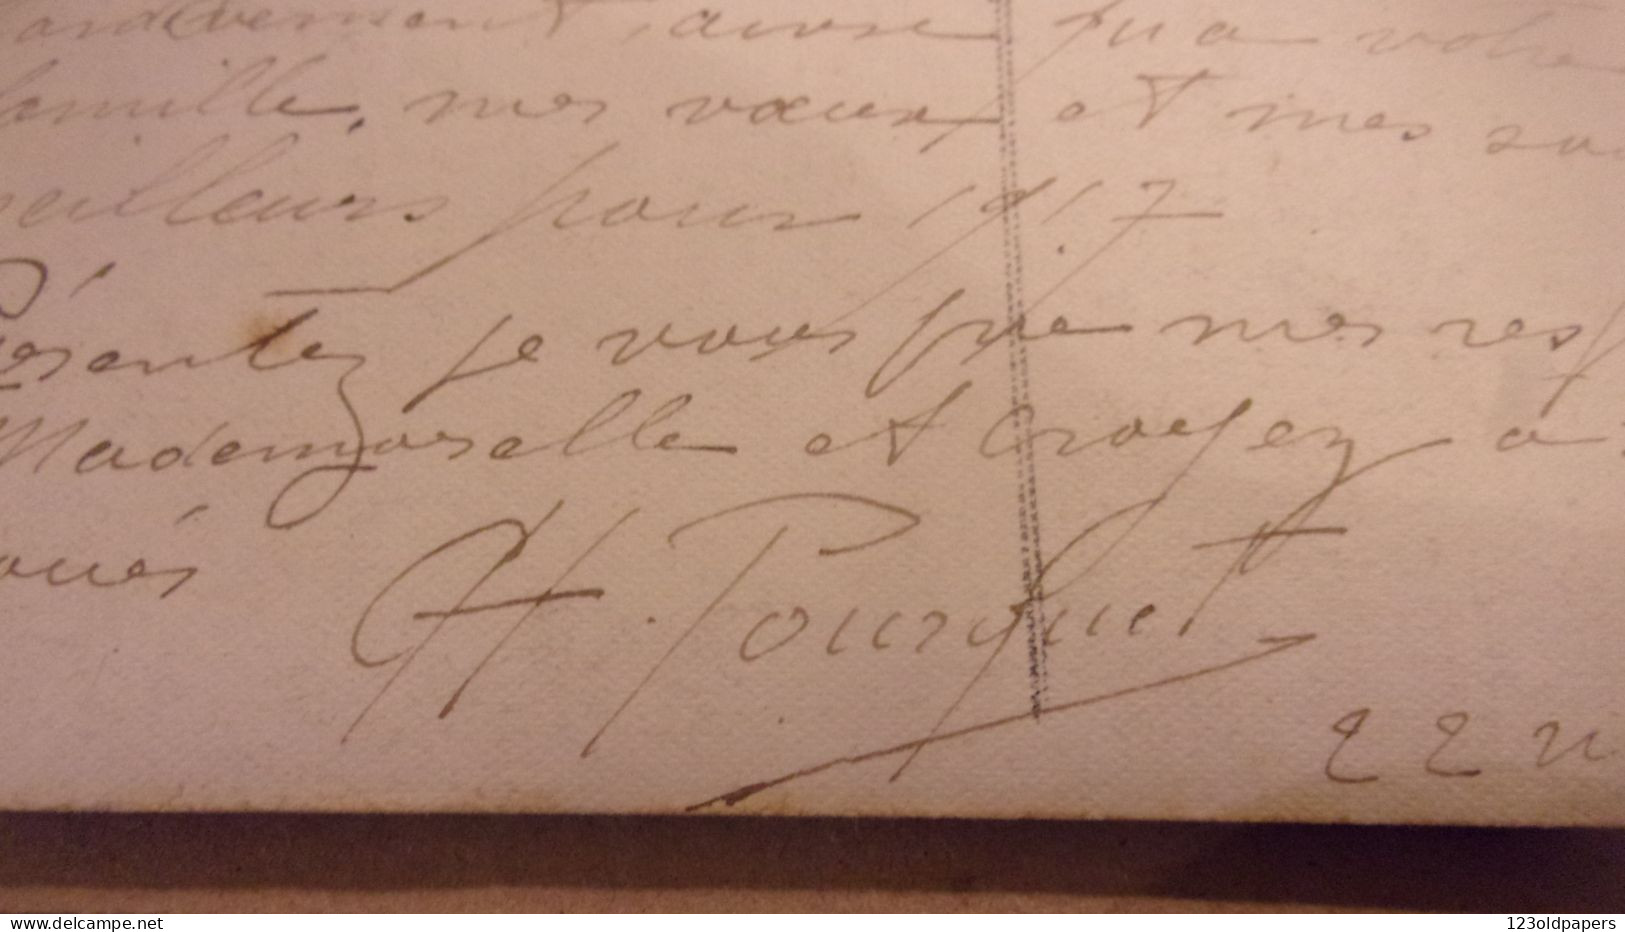 ainsi qu'à votre
famille, mes vœux et mes
meilleurs pour 1917
Présentez je vous prie mes resp
Mademoiselle et croyez à
H. Pourquet
22
www.delcampe.net
123oldpapers